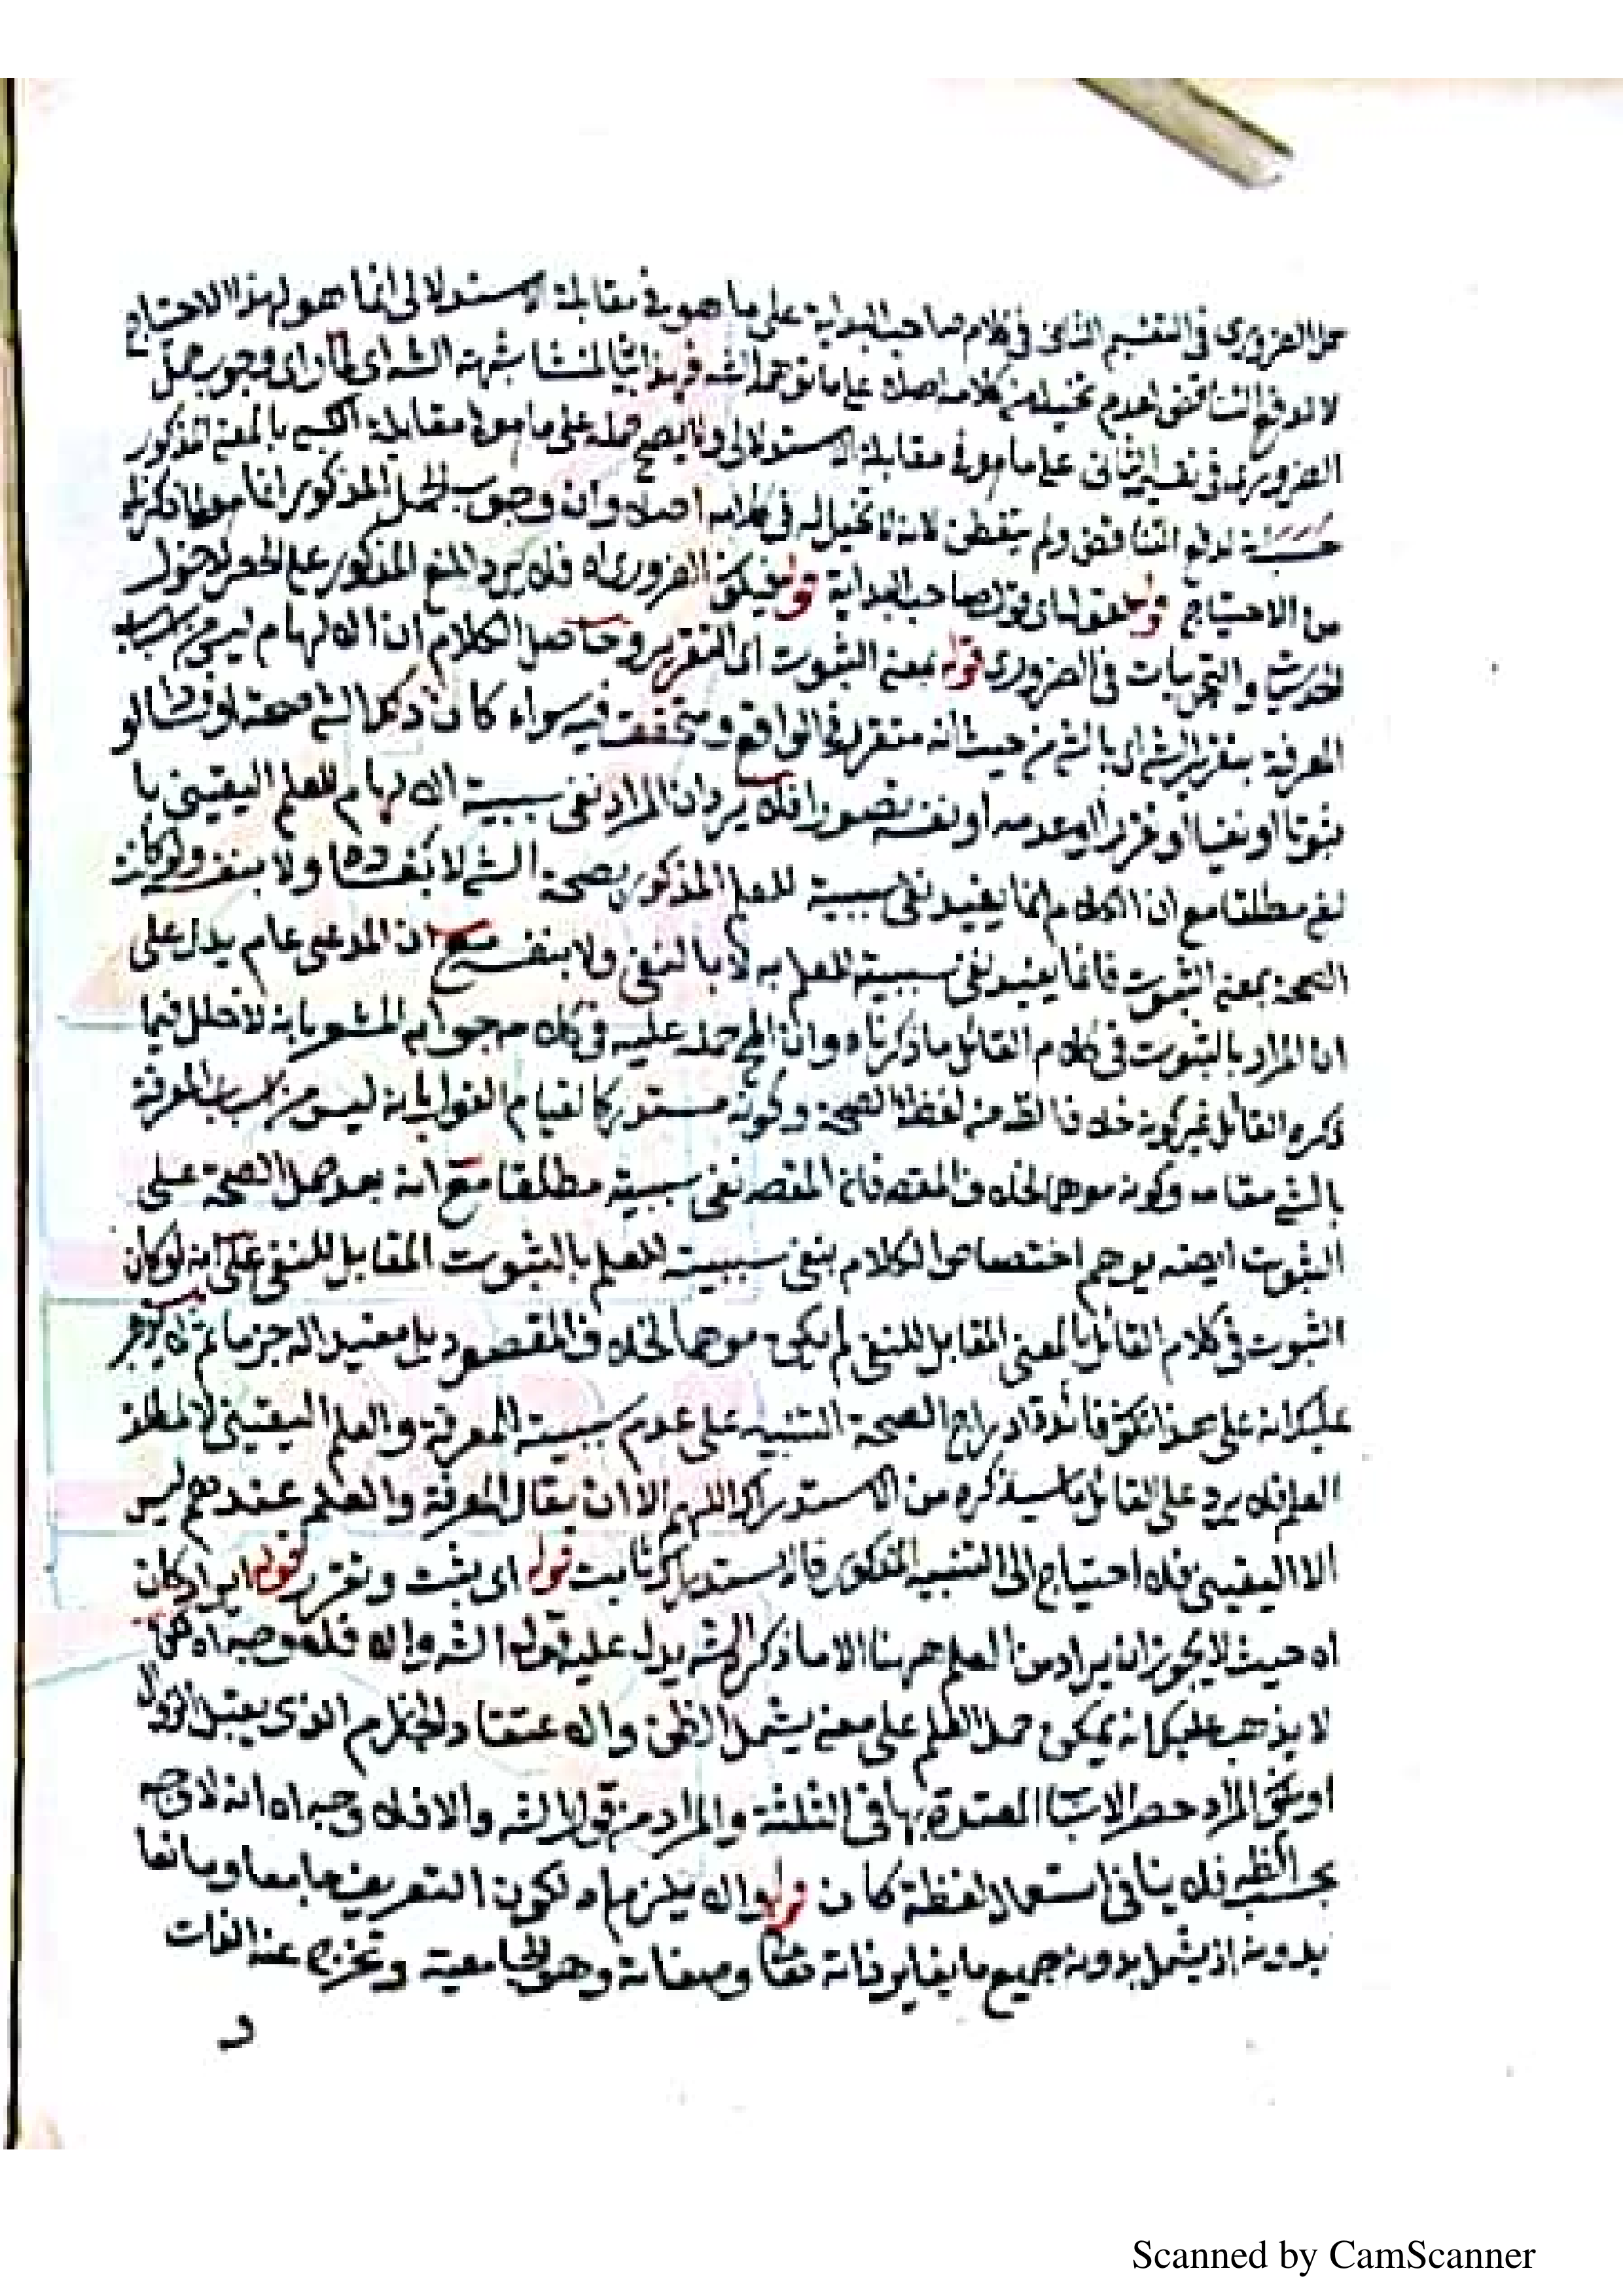 حمل الضرورى فى التقسيم الثانى فى كلام صاحب البداية على ما هو فى مقابلة الاستدلالى انما هو لهذا الاحتياج
لا لدفع التناقض لعدم تخيله من كلامه اصلا على ما توهمه الشه فهذا بيان لمنشا شبهة الشه اى لما راى وجوب حمل
الضرورى فى تفسير الثانى على ما هو فى مقابلة الاستدلالى ولا يصح حمله على ما هو فى مقابلة الكسبى بالمعنى المذكور
حسبانه لدفع التناقض ولم يتفطن لانه لا تخيل له فى كلامه اصلا وان وجوب الحمل المذكور انما هو لما ذكرنا
من الاحتياج قوله اى قول صاحب البداية قوله فيكون الضرورى اه فلا يرد المنع المذكور على الحصر لدخول
الحدسيات والتجربيات فى الضرورى قوله بمعنى الثبوت اى التقرير وحاصل الكلام ان الالهام ليس من اسباب
المعرفة بتقرير الشئ اى بالشئ من حيث انه متقرر فى الواقع ومتحقق فيه سواء كان ذلك الشئ صحة او فسادا او
ثبوتا او نفيا او تقررا او عدمه او نفسه تصورا فلا يرد ان المراد نفى سببية الالهام للعلم اليقينى با
لغ مطلقا مع ان الكلام انما يفيد نفى سببية للعلم المذكور بصحة الشئ لا بفساده ولا بنفسه ولو كانت
الصحة بمعنى الثبوت فانما يفيد نفى سببية للعلم به لا بالنفى ولا بنفسه مع ان المدعى عام يدل على
ان المراد بالثبوت فى كلام القائل ما ذكرناه وان حمله عليه فى كلامه جوابه المشعر بانه لا خلل فيما
ذكره القائل غير كونه خلاف الظه من لفظ الصحة وكونه مستدركا لقيام القول بانه ليس من اسباب المعرفة
بالشئ مقامه وكونه موهما لخلاف المقصه فان المقصه نفى سببيته مطلقا مع انه بعد حمل الصحة على
الثبوت ايضه يوهم اختصاص الكلام بنفى سببيته للعلم بالثبوت المقابل للنفى على انه لو كان
الثبوت فى كلام القائل بالمعنى المقابل للنفى لم يكن موهما لخلاف المقصود بل مفيدا له جزما ثم
عليك انه على هذا تكون فائدة ادراج الصحة التنبيه على عدم سببيته للمعرفة والعلم اليقينى لا لمطلق
العلم فلا يرد على القائل ما سيذكره من الاستدراك اللهم الا ان يقال المعرفة والعلم عندهم ليس
الا اليقينى فلا احتياج الى التنبيه المذكور فالاستدراك ثابت قوله اى يثبت ويتقرر قوله ايراد كان
اه حيث لا يجوز ان يراد من العلم ههنا الا ما ذكر الشه يدل عليه قول الشه والا فلا وجه اه
لا يذهب عليك انه يمكن حمل العلم على معنى يشمل الظن والاعتقاد الجازم الذى يقبل الزوال
او يكون المراد حصر الاسباب المعتدة بها فى الثلثة والمراد من قول الشه والا فلا وجه اه انه لا وجه
بحسب الظه فلا ينافى استعمال لفظة كان قوله والا يلزم اه لكون التعريف جامعا ومانعا
بدونه اذ يشمل بدونه جميع ما يغاير ذاته تعا وصفاته وهو الجامعية وتخرج عنه الذات
Scanned by CamScanner